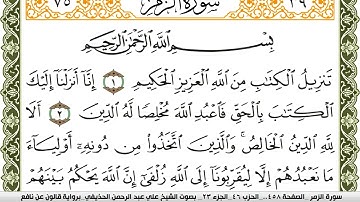 ٧٥ سورة الزمر ٣٩
بِسْمِ اللَّهِ الرَّحْمَٰنِ الرَّحِيمِ
تَنزِيلُ الْكِتَٰبِ مِنَ اللَّهِ الْعَزِيزِ الْحَكِيمِ ١ إِنَّا أَنزَلْنَا إِلَيْكَ
الْكِتَٰبَ بِالْحَقِّ فَاعْبُدِ اللَّهَ مُخْلِصًا لَّهُ الدِّينَ ٢ أَلَا
لِلَّهِ الدِّينُ الْخَالِصُ وَالَّذِينَ اتَّخَذُوا مِن دُونِهِ أَوْلِيَاءَ
مَا نَعْبُدُهُمْ إِلَّا لِيُقَرِّبُونَا إِلَى اللَّهِ زُلْفَىٰ إِنَّ اللَّهَ يَحْكُمُ بَيْنَهُمْ
سورة الزمر _ الصفحة ٤٥٨ _ الحزب ٤٦ _ الجزء ٢٣ _ بصوت الشيخ علي عبد الرحمن الحذيفي _ برواية قالون عن نافع